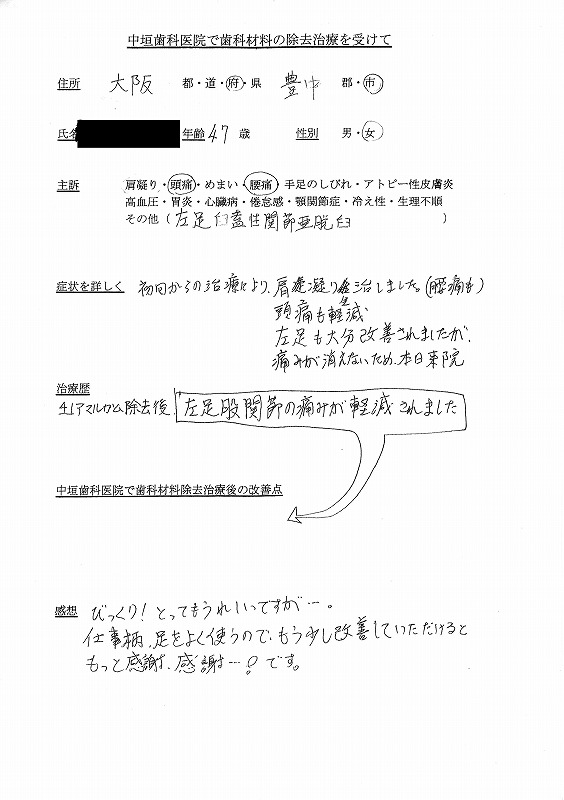 中垣歯科医院で歯科材料の除去治療を受けて
住所 大阪 都・道・府・県 豊中 郡・市
氏名 年齢 47 歳 性別 男・女
主訴 肩凝り・頭痛・めまい・腰痛・手足のしびれ・アトピー性皮膚炎
高血圧・胃炎・心臓病・倦怠感・顎関節症・冷え性・生理不順
その他(左足臼蓋性関節亜脱臼)
症状を詳しく 初回からの治療により、肩凝り全治しました。(腰痛も)
頭痛も軽減
左足も大分改善されましたが、
痛みが消えないため、本日来院
治療歴
41アマルガム除去後 左足股関節の痛みが軽減されました
中垣歯科医院で歯科材料除去治療後の改善点
感想 びっくり!とってもうれしいですが…。
仕事柄、足をよく使うので、もう少し改善していただけると
もっと感謝、感謝…!です。